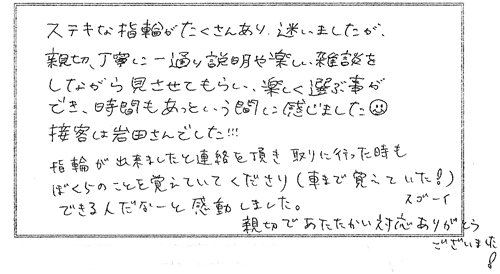 ステキな指輪がたくさんあり、迷いましたが、
親切、丁寧に一通り説明や楽しい雑談を
しながら見させてもらい、楽しく選ぶ事が
でき、時間もあっという間に感じました☺
接客は岩田さんでした!!!
指輪が出来ましたと連絡を頂き取りに行った時も
ぼくらのことを覚えていてくださり(車まで覚えていた!)
スゴーイ
できる人だなーと感動しました。
親切であたたかい対応ありがとう
ございました!